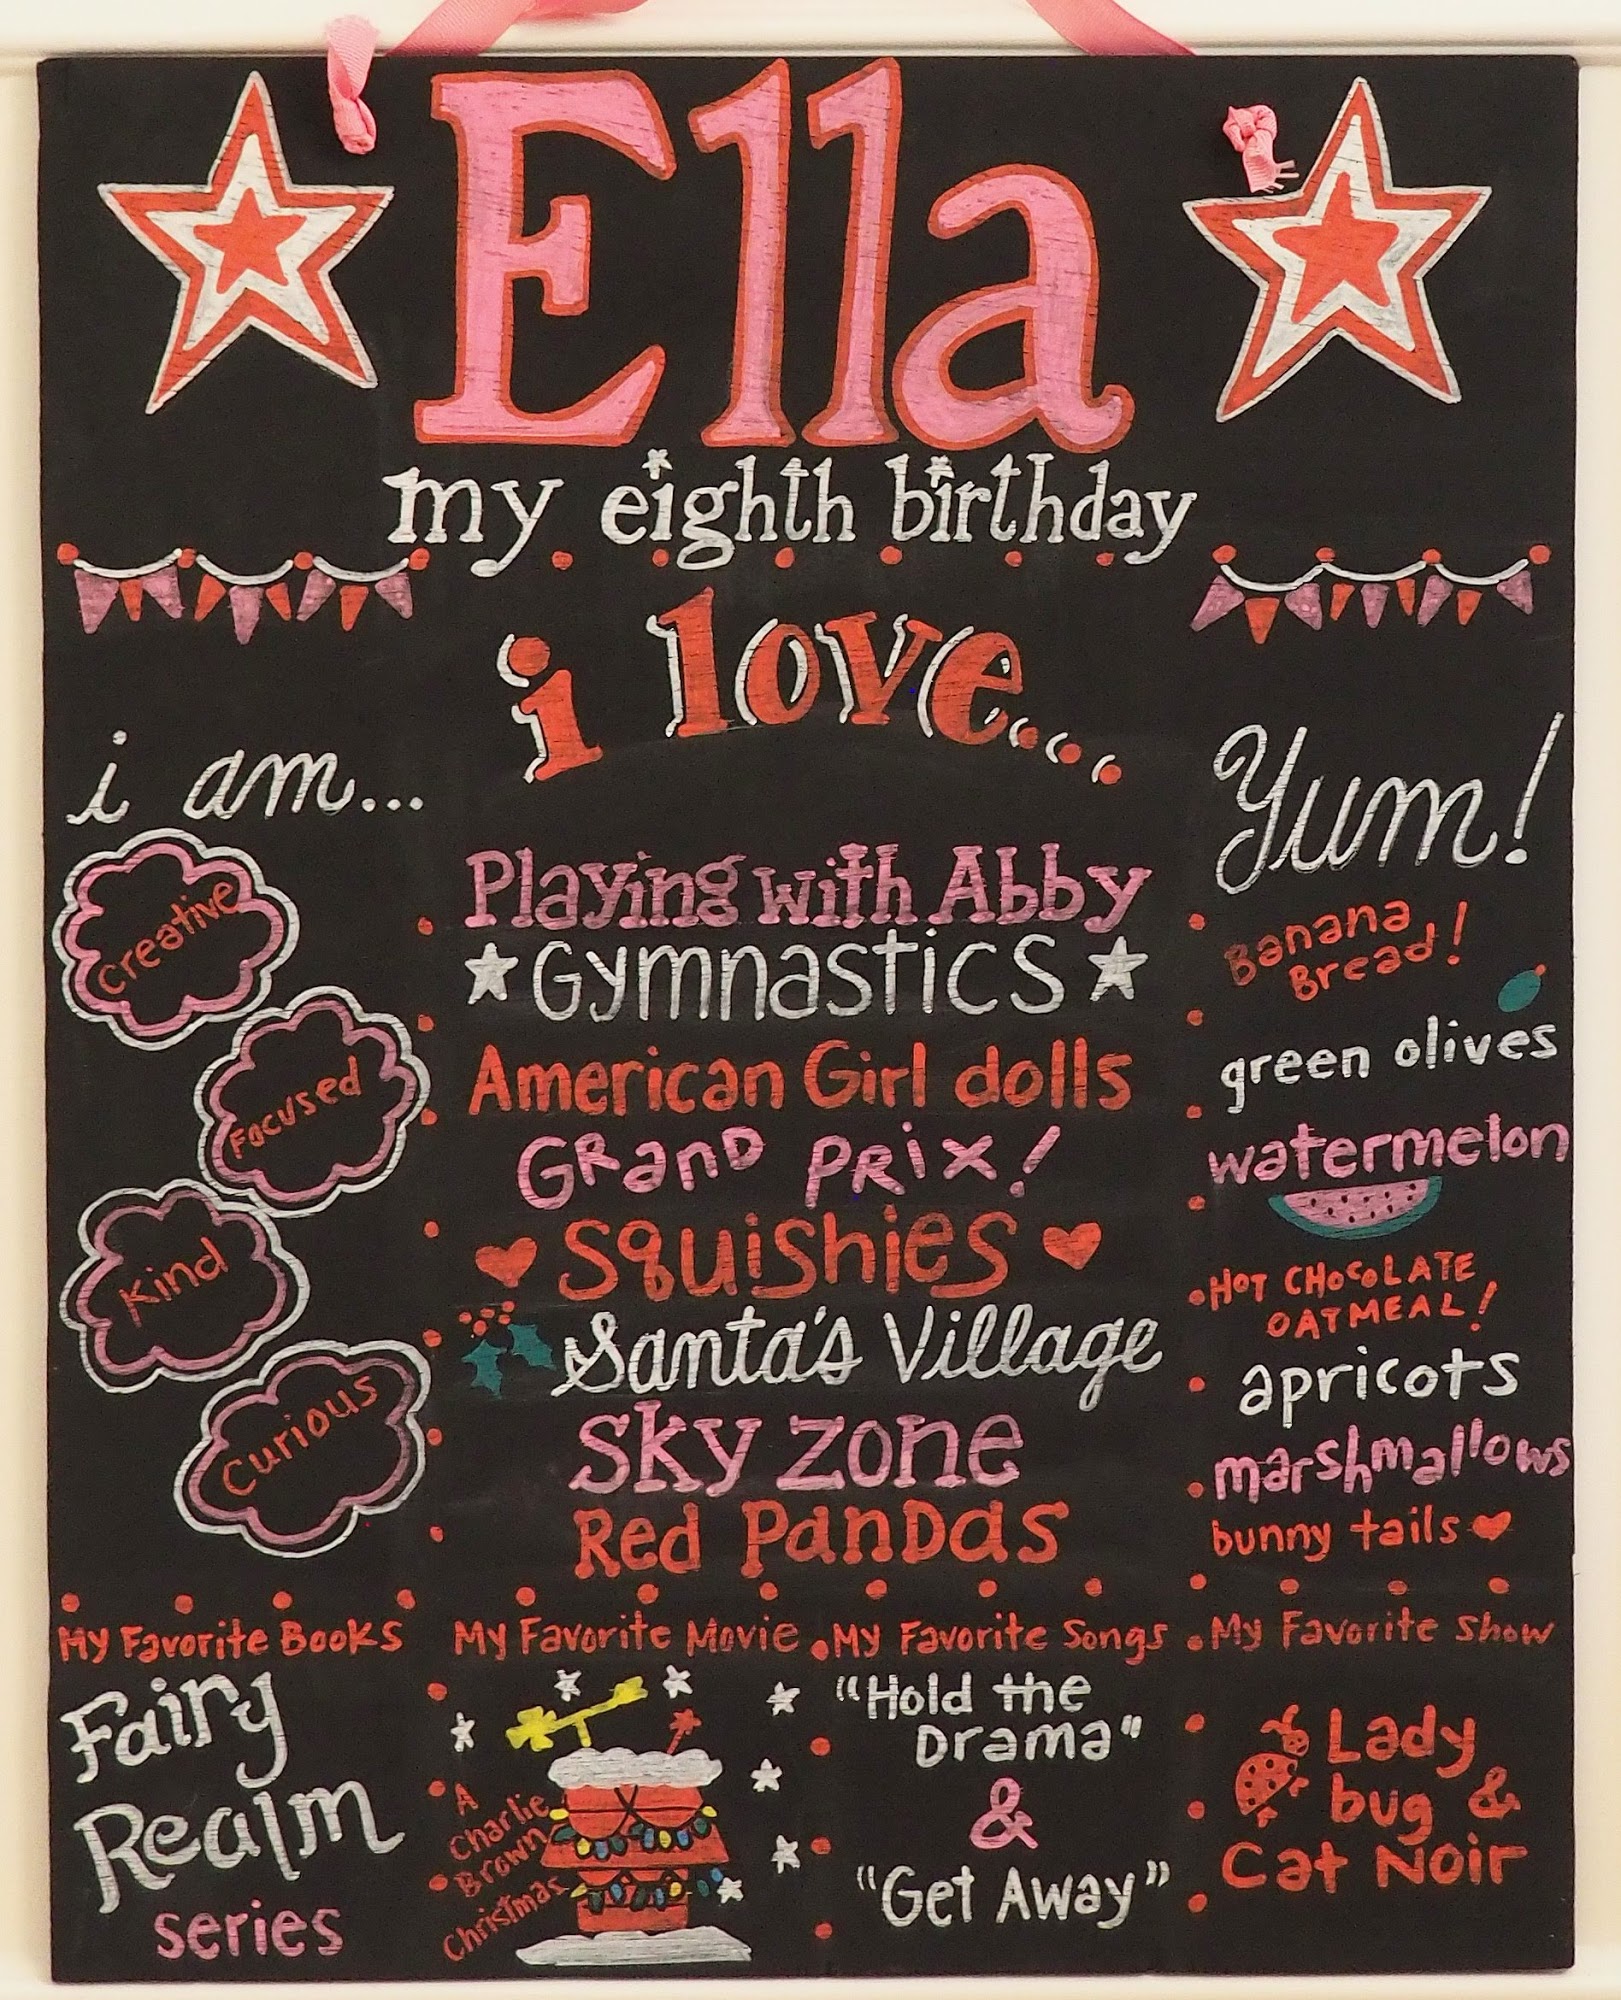 Ella
my eighth birthday
i love...
i am...
Creative
Focused
Kind
Curious
Playing with Abby
Gymnastics
American Girl dolls
Grand Prix!
Squishies
Santa's Village
Sky Zone
Red Pandas
Yum!
Banana
Bread!
green olives
watermelon
HOT CHOCOLATE
OATMEAL!
apricots
marshmallows
bunny tails
My Favorite Books
Fairy
Realm
series
My Favorite Movie
A
Charlie
Brown
Christmas
My Favorite Songs
"Hold the
Drama"
&
"Get Away"
My Favorite Show
Lady
bug &
Cat Noir